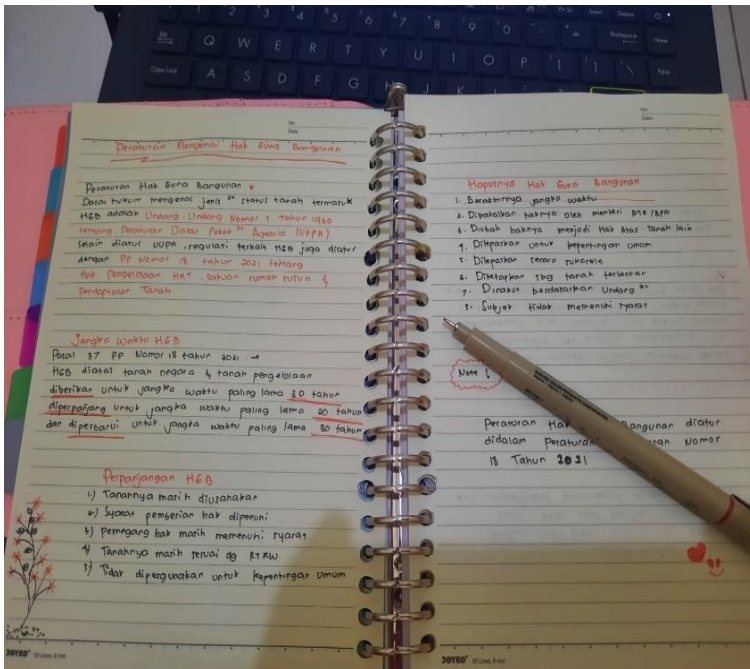 Peraturan Mengenai Hak Guna Bangunan
Peraturan Hak Guna Bangunan
Dasar hukum mengenai jenis 2n status tanah termasuk
HGB adalah Undang-Undang Nomor 5 Tahun 1960
tentang Peraturan Dasar Pokok 2n Agraria (UUPA)
Selain diatur UUPA, regulasi terkait HGB juga diatur
dengan PP Nomor 18 tahun 2021 tentang
Hak Pengelolaan HAT, Satuan rumah susun &
Pendaftaran Tanah
Jangka Waktu HGB
Pasal 37 PP Nomor 18 tahun 2021 →
HGB diatas tanah negara & tanah pengelolaan
diberikan untuk jangka waktu paling lama 30 tahun
diperpanjang untuk jangka waktu paling lama 20 tahun
dan diperbarui untuk jangka waktu paling lama 30 tahun
Perpanjangan HGB
1.) Tanahnya masih diusahakan
2.) Syarat pemberian hak dipenuhi
3) Pemegang hak masih memenuhi syarat
4) Tanahnya masih sesuai dg RTRW
5) Tidak dipergunakan untuk kepentingan umum
JOYKO
No:
Date
Hapusnya Hak Guna Bangunan
1. Berakhirnya jangka waktu
2. Dibatalkan haknya oleh menteri ATR/BPN
3. Diubah haknya menjadi Hak Atas Tanah lain
4. Dilepaskan untuk kepentingan umum
5. Dilepaskan secara sukarela
6. Ditetapkan sbg tanah terlantar
7. Dicabut berdasarkan Undang 2n
8. Subjek tidak memenuhi syarat
Note !
Peraturan Hak Bangunan diatur
didalam Peraturan Nomor
18 Tahun 2021
JOYKO
Q W E R T Y U I O P
A S D F G H J K L
Caps Lock
Backspace
Delete
Insert